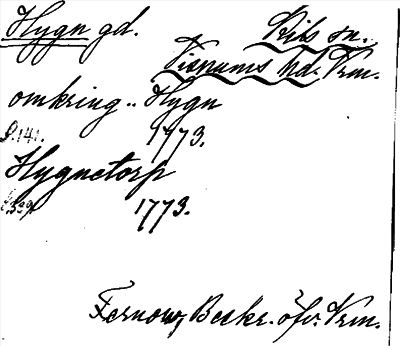 Hygn gd. Ribs sn.
Visnums hd. Vrm.
omkring .. Hygn
s. 141. 1773.
Hygnetorp
s. 359. 1773.
Fernow, Beskr. öfv. Vrm.